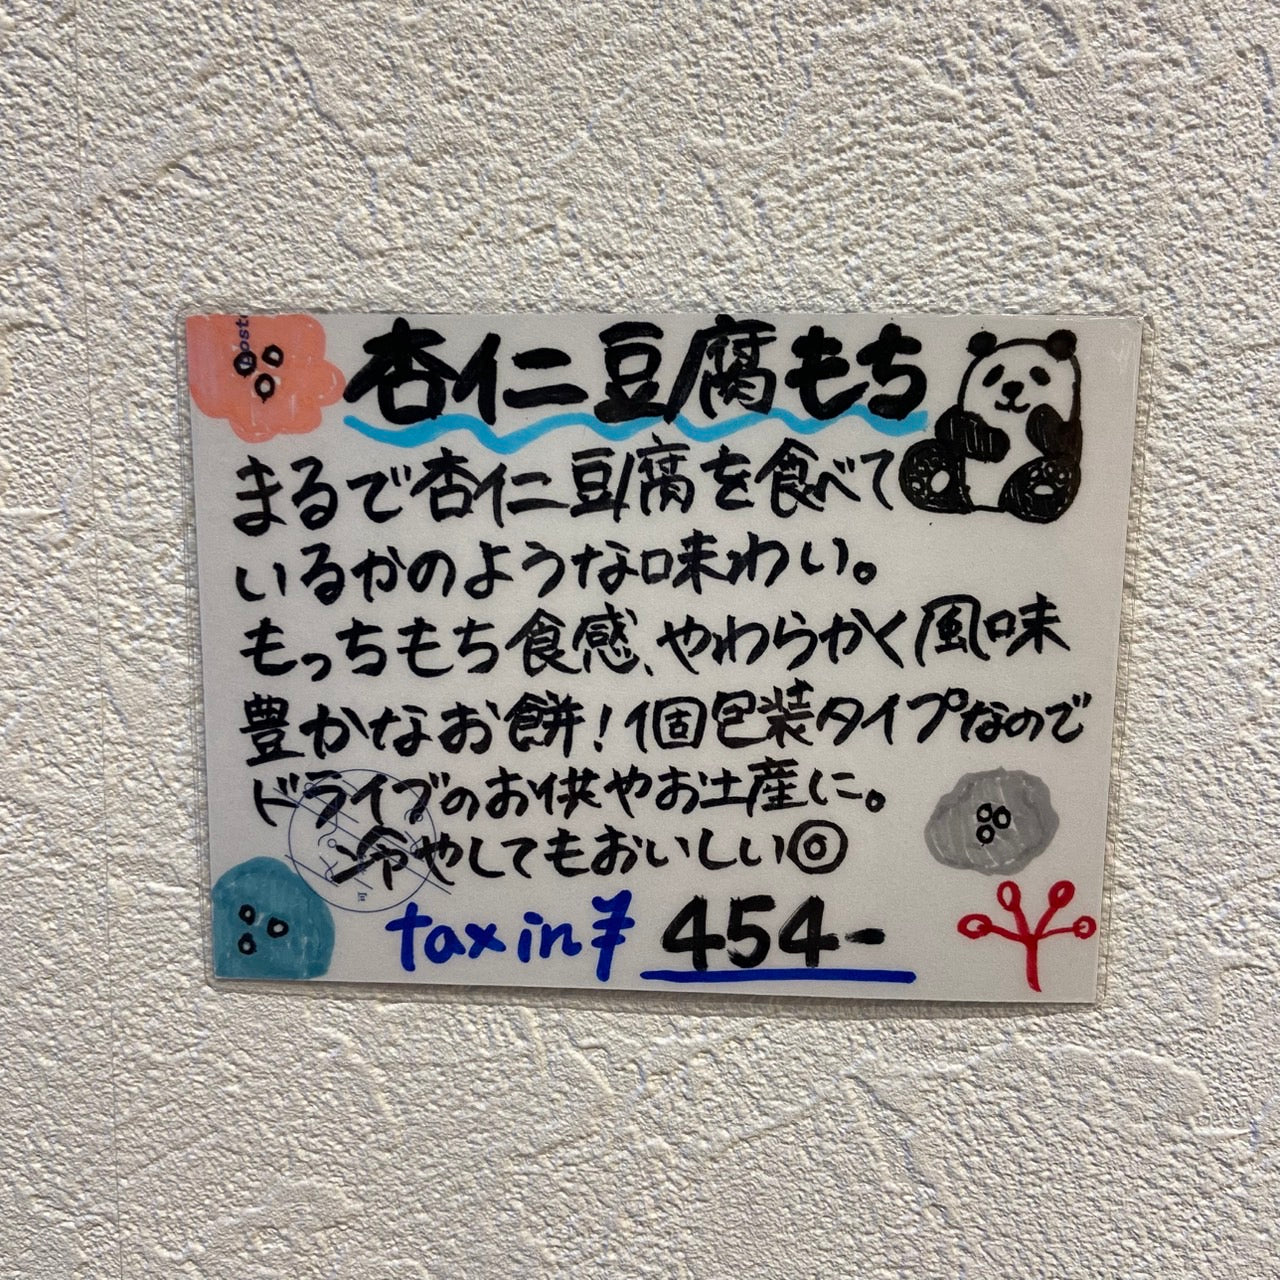 杏仁豆腐もち
まるで杏仁豆腐を食べて
いるかのような味わい。
もっちもち食感、やわらかく風味
豊かなお餅！個包装タイプなので
ドライブのお供やお土産に。
冷やしてもおいしい◎
tax in ¥ 454-